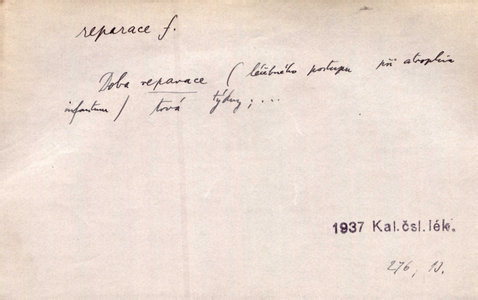 reparace f.
Doba reparace (léčebného postupu při atrophia
infantum) trvá týdny; ...
1937 Kal.čsl.lék.
276, B.